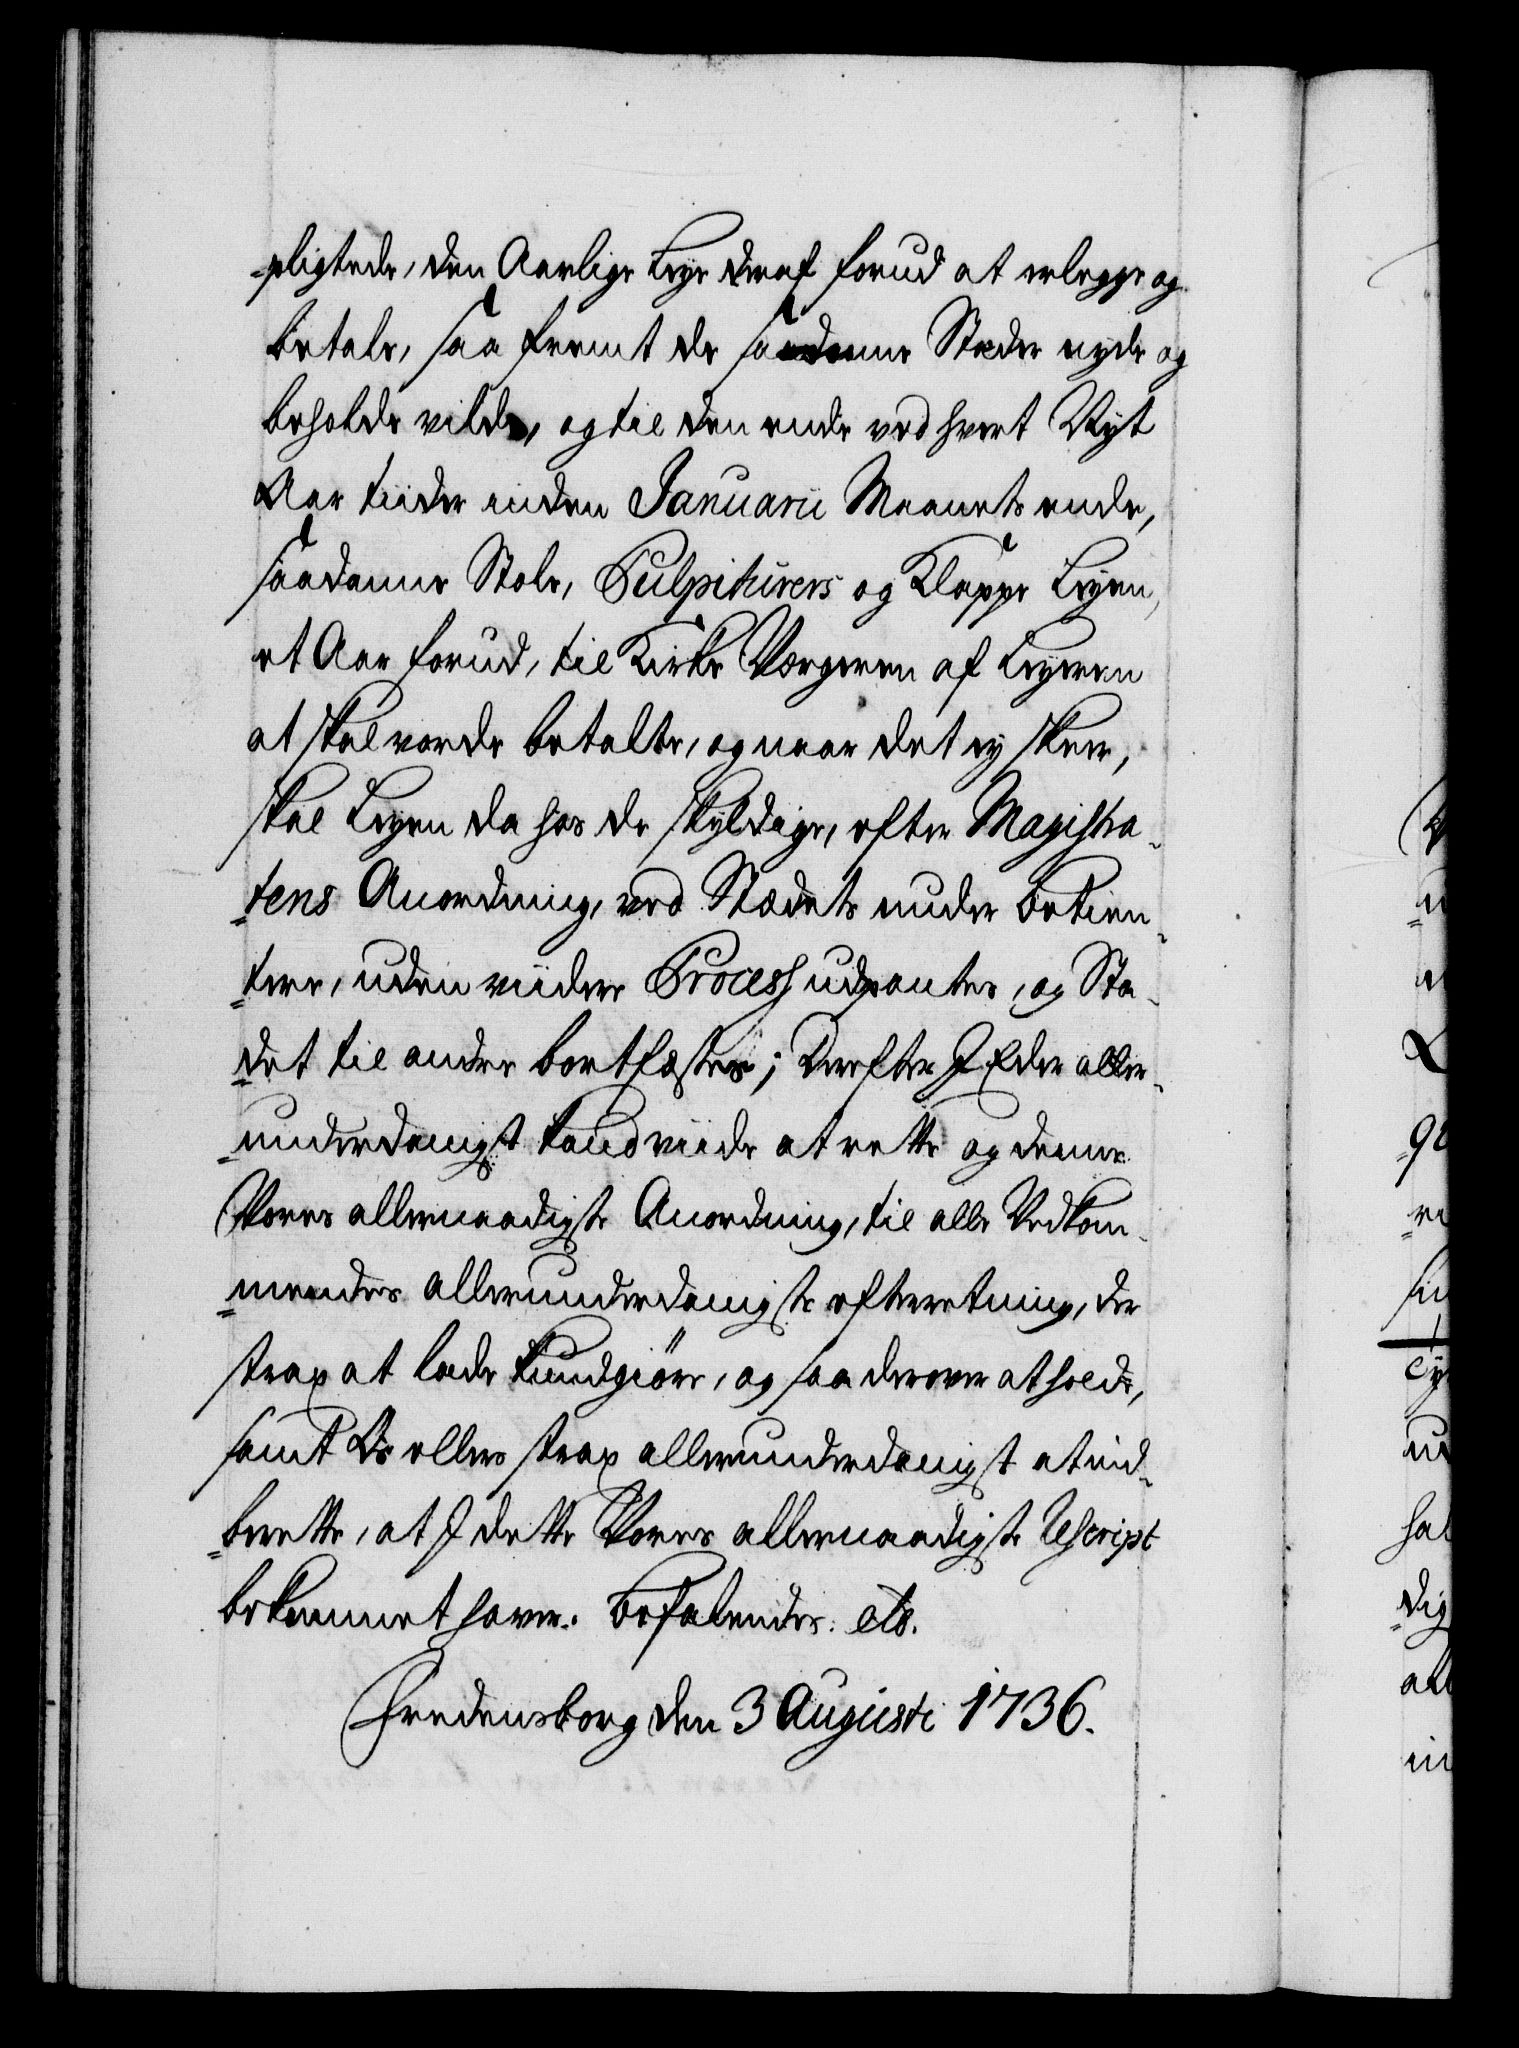 -pligtede, den Aarlige Leye deraf forud at erlegge og
betale, saa fremt de saadanne Stæder nyde og
beholde vilde, og til den ende ved hvert Nyt
Aar tiider inden Januarii Maanets ende,
saadanne Stole, Pulpiturers og Klappe Leyen,
et Aar forud, til Kirke Værgeren af Leyeren
at skal vorde betalte, og naar det ey skeer,
skal Leyen da hos de skyldige, efter Magistra-
tens Anordning, ved Stædets under betien-
tere, uden viidere Process udpantes, og Sta-
det til andre bortfæstes; Derefter I Eder aller-
underdanigst haver viide at rette og denne
Vores allernaadigste Anordning, til alle Vedkom-
mendes allerunderdanigste efterretning, der
strax at lade kundgiöre, og saa derover at holde,
samt Os ellers strax allerunderdanigst at ind-
berette, at I dette Vores allernaadigste Rescript
bekommet haver. Befalendes. etc.
Fredensborg den 3 Augusti 1736.